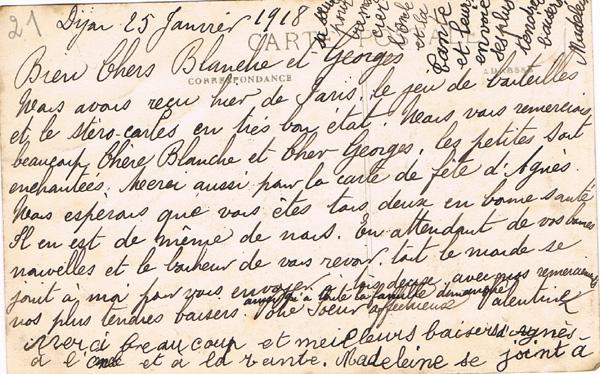 21
Dijon 25 Janvier 1918
CARTE POSTALE
Bien Chers Blanche et Georges
CORRESPONDANCE
ADRESSE
Nous avons reçu hier de Paris, le jeu de bouteilles
et le stéréo-cartes en très bon état. Nous vous remercions
beaucoup, Chère Blanche et Cher Georges, les petites sont
enchantées. Merci aussi pour la carte de fête d'Agnès.
Nous espérons que vous êtes tous deux en bonne santé
Il en est de même de nous. En attendant de vos bonnes
nouvelles et le bonheur de vous revoir, tout le monde se
joint à moi pour vous envoyer à tous deux, avec nos remerciements
nos plus tendres baisers. Votre Soeur affectueuse Valentine
ainsi qu'à toute la famille
merci beaucoup et meilleurs baisers d'agnès
à l'oncle et à la tante. Madeleine se joint à
sa soeur
pour
et la
tante
et leur
envoie
ses plus
tendres
baisers
Madeleine